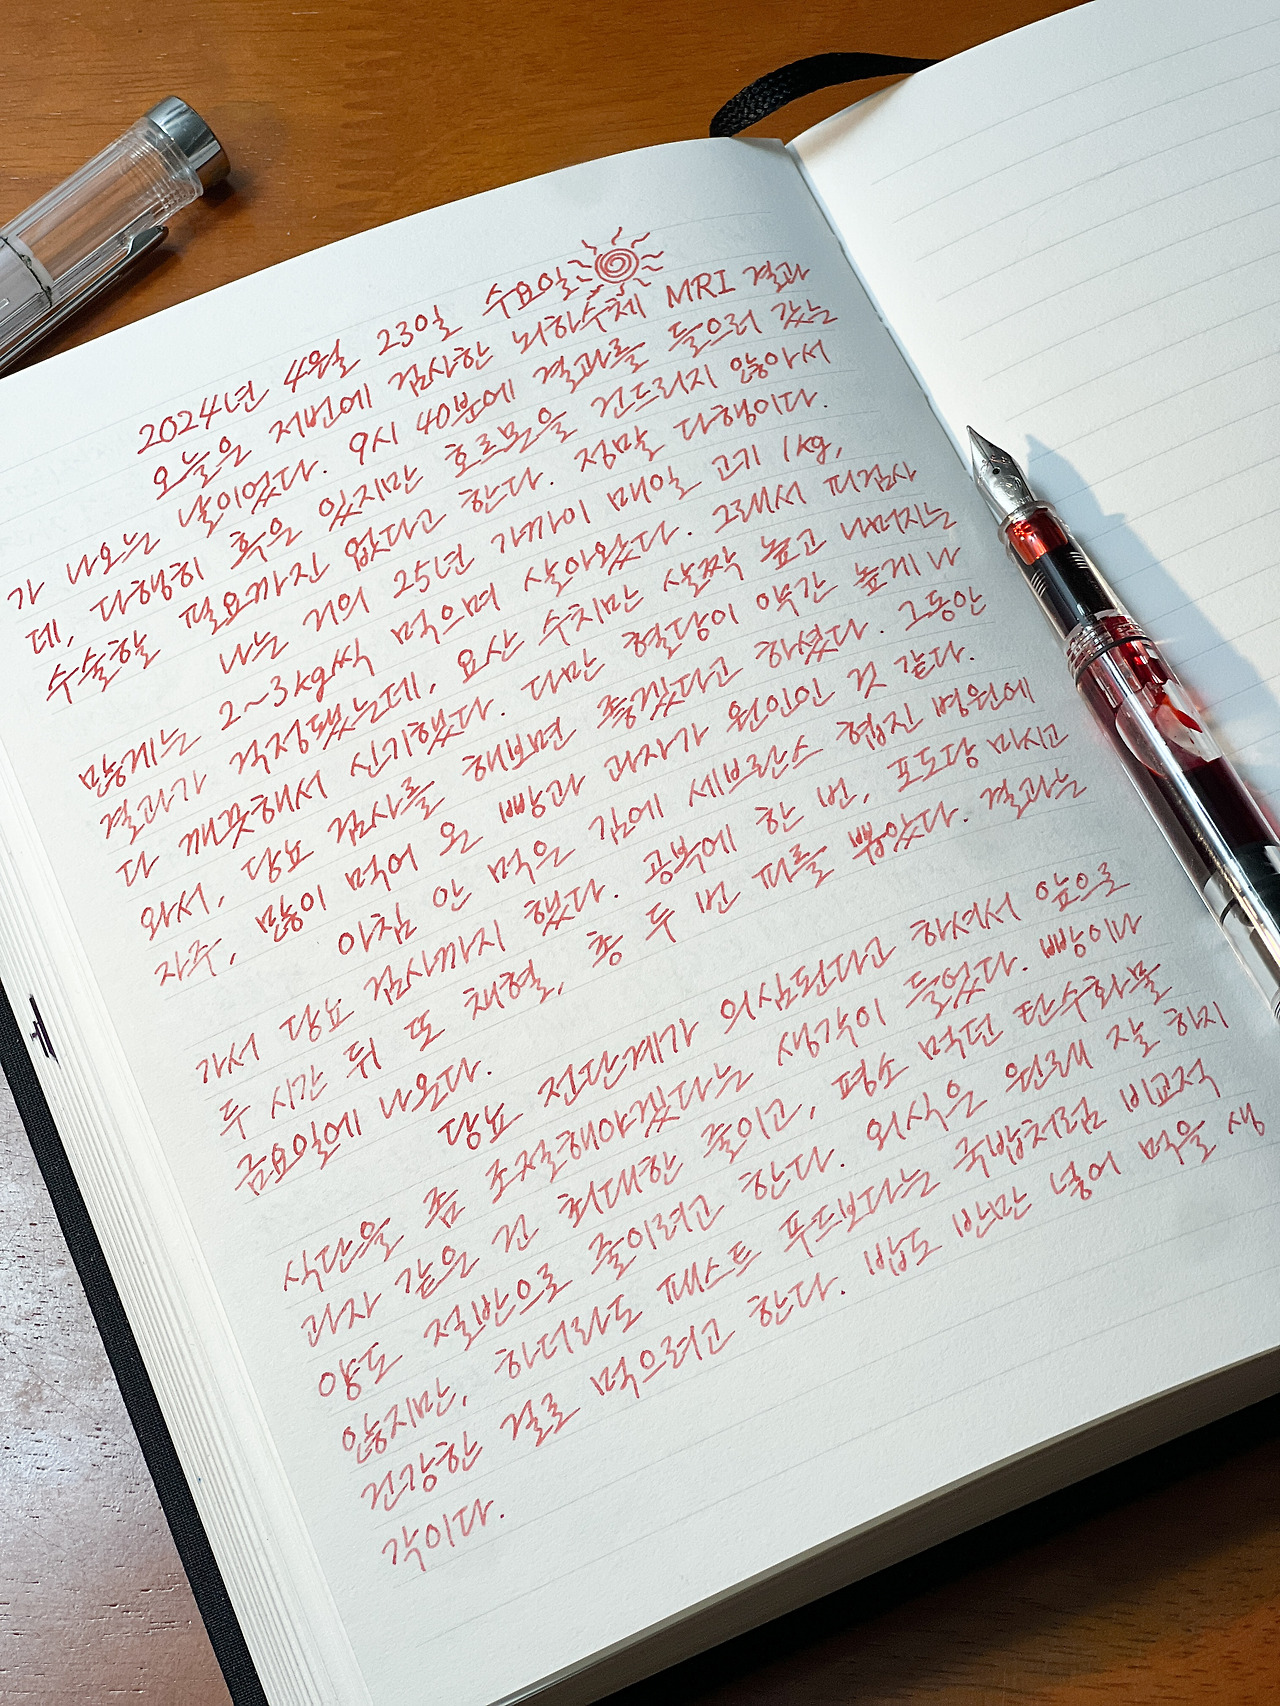 2024년 4월 23일 수요일
오늘은 저번에 검사한 뇌하수체 MRI 결과
가 나오는 날이었다. 9시 40분에 결과를 들으러 갔는
데, 다행히 혹은 있지만 호르몬을 건드리지 않아서
수술할 필요까진 없다고 한다. 정말 다행이다.
나는 거의 25년 가까이 매일 고기 1kg,
많게는 2~3kg씩 먹으며 살아왔다. 그래서 피검사
결과가 걱정됐는데, 요산 수치만 살짝 높고 나머지는
다 깨끗해서 신기했다. 다만 혈당이 약간 높게 나
와서, 당뇨 검사를 해보면 좋겠다고 하셨다. 그동안
자주, 많이 먹어 온 빵과 과자가 원인인 것 같다.
아침 안 먹은 김에 세브란스 협진 병원에
가서 당뇨 검사까지 했다. 공복에 한 번, 포도당 마시고
두 시간 뒤 또 채혈, 총 두 번 피를 뽑았다. 결과는
금요일에 나온다.
당뇨 전단계가 의심된다고 하셔서 앞으로
식단을 좀 조절해야겠다는 생각이 들었다. 빵이나
과자 같은 건 최대한 줄이고, 평소 먹던 탄수화물
양도 절반으로 줄이려고 한다. 외식은 원래 잘 하지
않지만, 하더라도 패스트 푸드보다는 국밥처럼 비교적
건강한 걸로 먹으려고 한다. 밥도 반만 넣어 먹을 생
각이다.